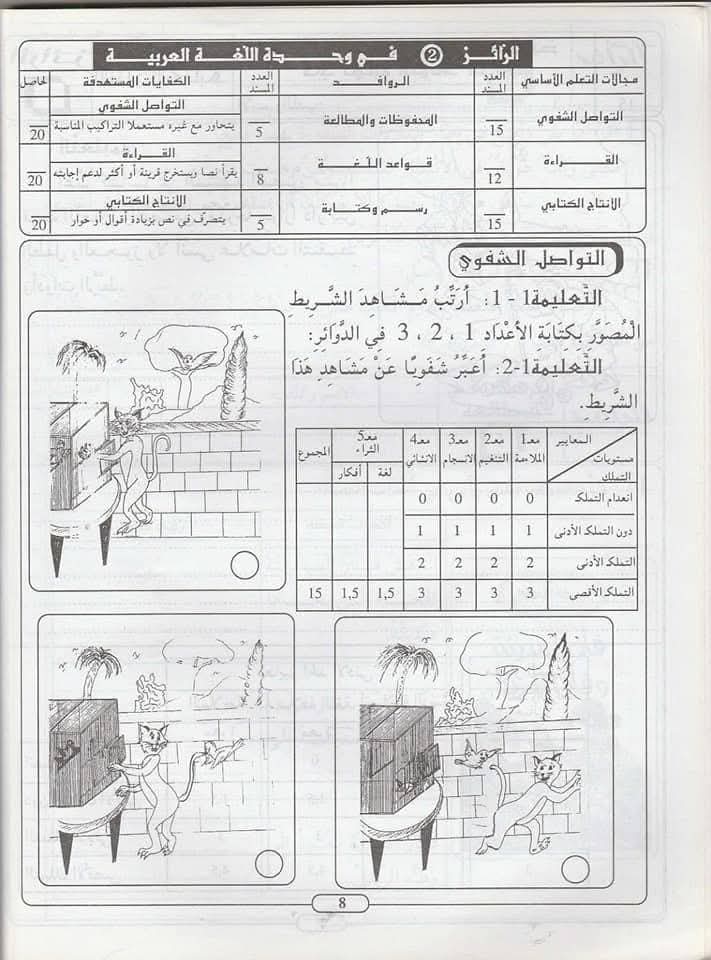 الرائز 2 في وحدة اللغة العربية
مجالات التعلم الأساسي | العدد المسند | الروافد | العدد المسند | الكفايات المستهدفة | الحاصل
التواصل الشفوي | 15 | المحفوظات والمطالعة | 5 | التواصل الشفوي | 20
يتحاور مع غيره مستعملا التراكيب المناسبة
القراءة | 12 | قواعد اللغة | 8 | القراءة | 20
يقرأ نصا ويستخرج قرينة أو أكثر لدعم إجابته
الإنتاج الكتابي | 15 | رسم وكتابة | 5 | الانتاج الكتابي | 20
يتصرف في نص بزيادة أقوال أو حوار
التواصل الشفوي
التَّعليمة1 - 1: أُرَتِّبُ مَشَاهِدَ الشَّرِيطِ
الْمُصَوَّرِ بِكِتَابَةِ الأَعْدَادِ 1 ، 2 ، 3 فِي الدَّوَائِرِ:
التَّعليمة1-2: أُعَبِّرُ شَفَوِيًّا عَنْ مَشَاهِدِ هَذَا
الشَّرِيطِ.
المعايير | معـ1 | معـ2 | معـ3 | معـ4 | معـ5 | المجموع
مستويات التملك | الملاءمة | التنغيم | الانسجام | الانشائي | الثراء
لغة | أفكار
انعدام التملك | 0 | 0 | 0 | 0
دون التملك الأدنى | 1 | 1 | 1 | 1
التملك الأدنى | 2 | 2 | 2 | 2
التملك الأقصى | 3 | 3 | 3 | 3 | 1,5 | 1,5 | 15
8